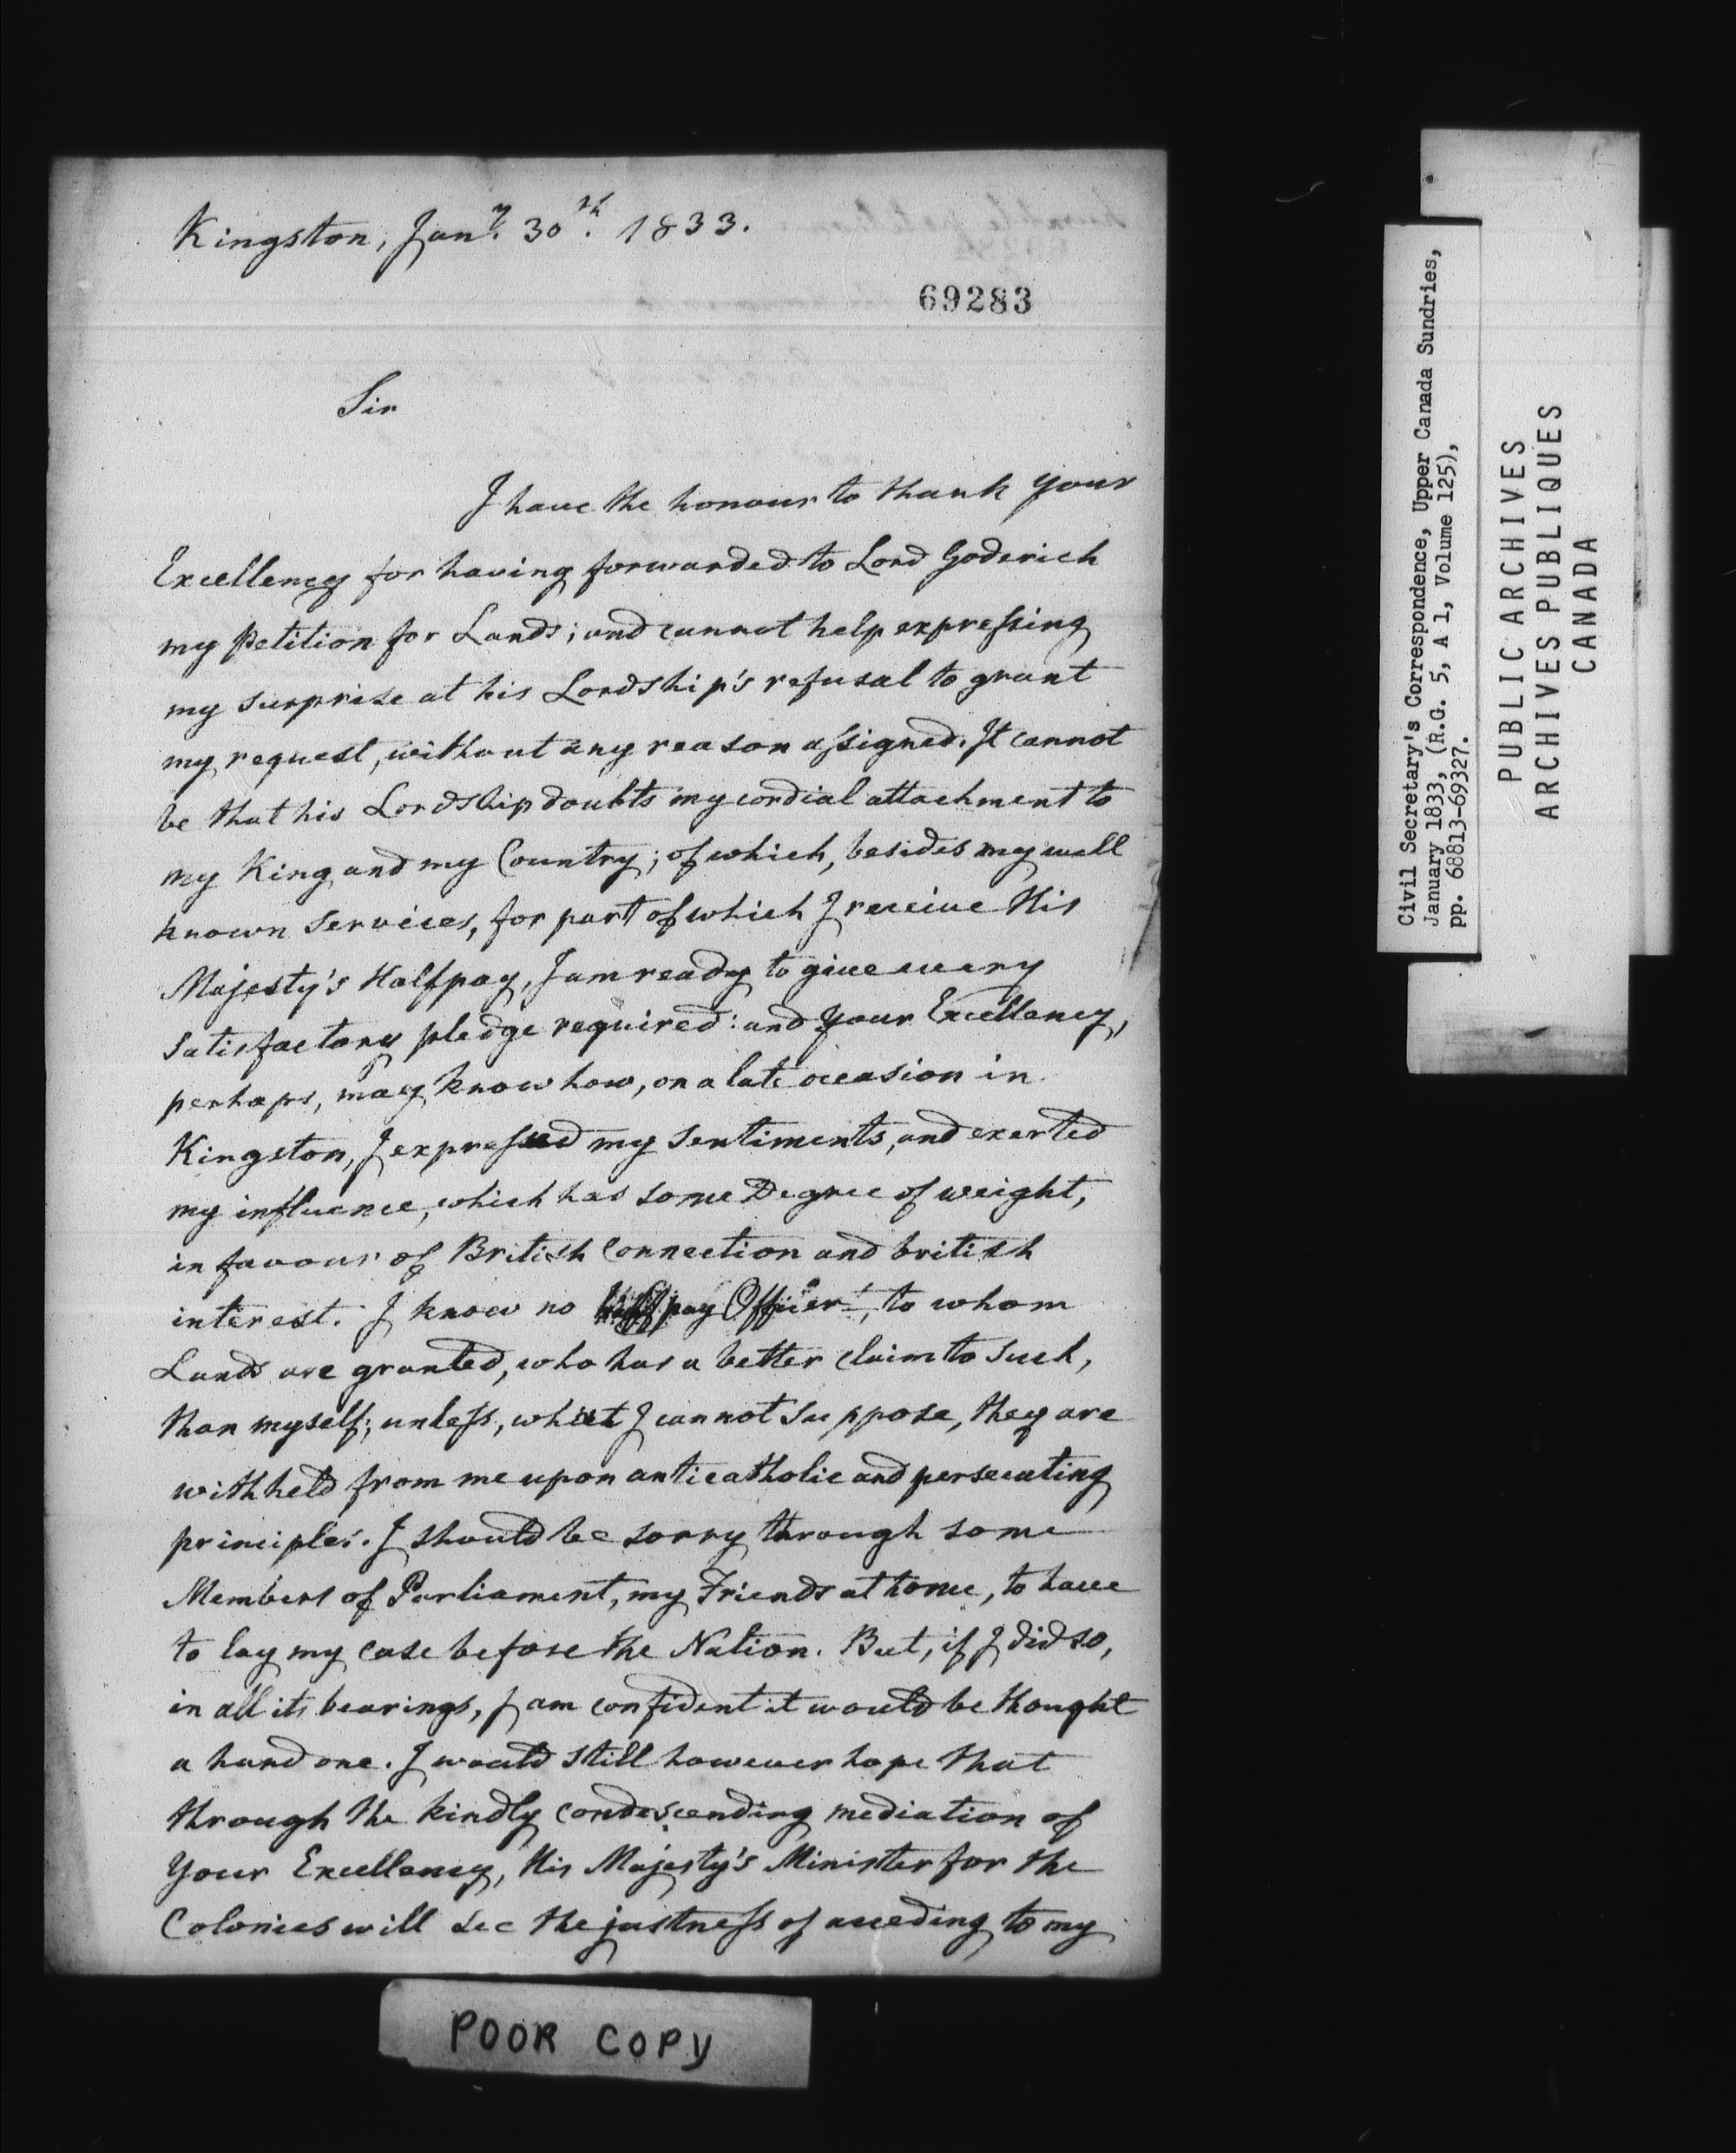 Kingston, Jany. 30th. 1833.
69283
Sir
I have the honour to thank Your
Excellency for having forwarded to Lord Goderich
my Petition for Lands; and cannot help expressing
my surprise at his Lordship's refusal to grant
my request, without any reason assigned. It cannot
be that his Lordship doubts my cordial attachment to
my King and my Country; of which, besides my well
known services, for part of which I receive His
Majesty's Halfpay, I am ready to give every
satisfactory pledge required: and Your Excellency,
perhaps, may know how, on a late occasion in
Kingston, I expressed my sentiments, and exerted
my influence, which has some Degree of weight,
in favour of British Connection and british
interest. I know no halfpay Officer, to whom
Lands are granted, who has a better claim to such,
than myself; unless, what I cannot suppose, they are
withheld from me upon anticatholic and persecuting
principles. I should be sorry through some
Members of Parliament, my Friends at home, to have
to lay my case before the Nation. But, if I did so,
in all its bearings, I am confident it would be thought
a hard one. I would still however hope that
through the kindly condescending mediation of
Your Excellency, His Majesty's Minister for the
Colonies will see the justness of acceding to my
POOR COPY
Civil Secretary's Correspondence, Upper Canada Sundries,
January 1833, (R.G. 5, A 1, Volume 125),
pp. 68813-69327.
PUBLIC ARCHIVES
ARCHIVES PUBLIQUES
CANADA